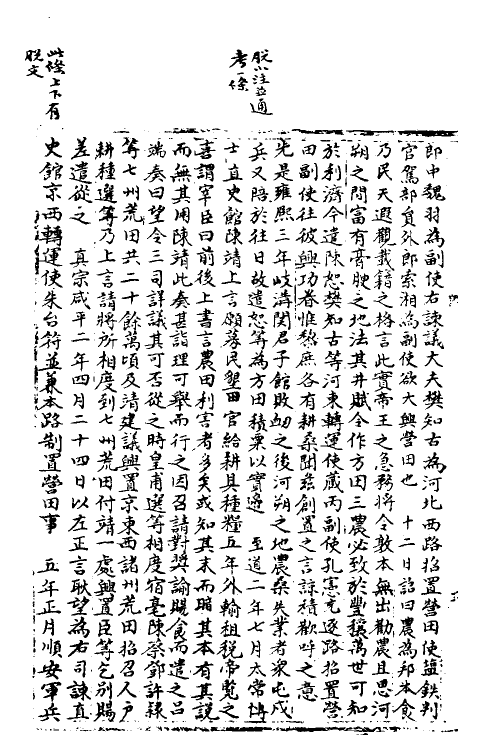 脫小注並通
考一條
此條上下有
脫文
郎中魏羽為副使右諫議大夫樊知古為河北西路招置營田使鹽鐵判
官駕部員外郎索湘為副使欲大興營田也　十二日詔曰農為邦本食
乃民天遐觀載籍之格言此實帝王之急務將令敦本無出勸農且思河
朔之間富有膏腴之地法其井賦令作方田三農必致於豐穰萬世可知
於利濟今遣陳恕樊知古等河東轉運使臧丙副使孔憲充逐路招置營
田副使往彼興功眷惟黎庶各有耕桑聞茲創置之言諒積歡呼之意
先是雍熙三年岐溝関君子館敗衂之後河朔之地農桑失業者衆屯戍
兵又陪於往日故遣恕等為方田積粟以實邊　至道二年七月太常博
士直史館陳靖上言願募民墾田官給耕具種糧五年外輸租稅帝覽之
喜謂宰臣曰前後上書言農田利害者多矣或知其末而暗其本有其說
而無其用陳靖此奏甚詣理可舉而行之因召請對奬諭賜食而遣之呂
端奏曰望令三司詳議其可否從之時皇甫選等相度宿亳陳蔡鄧許潁
等七州荒田共二十餘萬頃及靖建議興置京東西諸州荒田招召人户
耕種選等乃上言請將所相度到七州荒田付靖一處興置臣等乞別賜
差遣從之　真宗咸平二年四月二十四日以左正言耿望為右司諫直
史館京西轉運使朱台符並兼本路制置營田事　五年正月順安軍兵